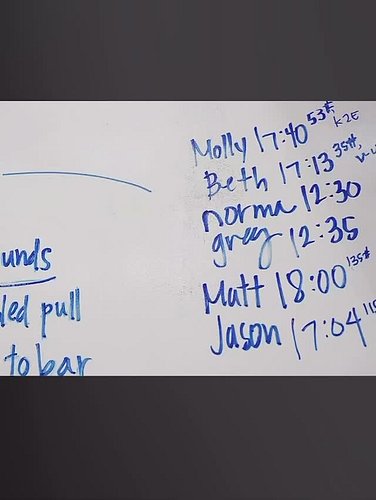 Molly 17:40 53#, K2E
Beth 17:13 35#,
norma 12:30
greg 12:35
Matt 18:00 135#
Jason 17:04
unds
led pull
to bar